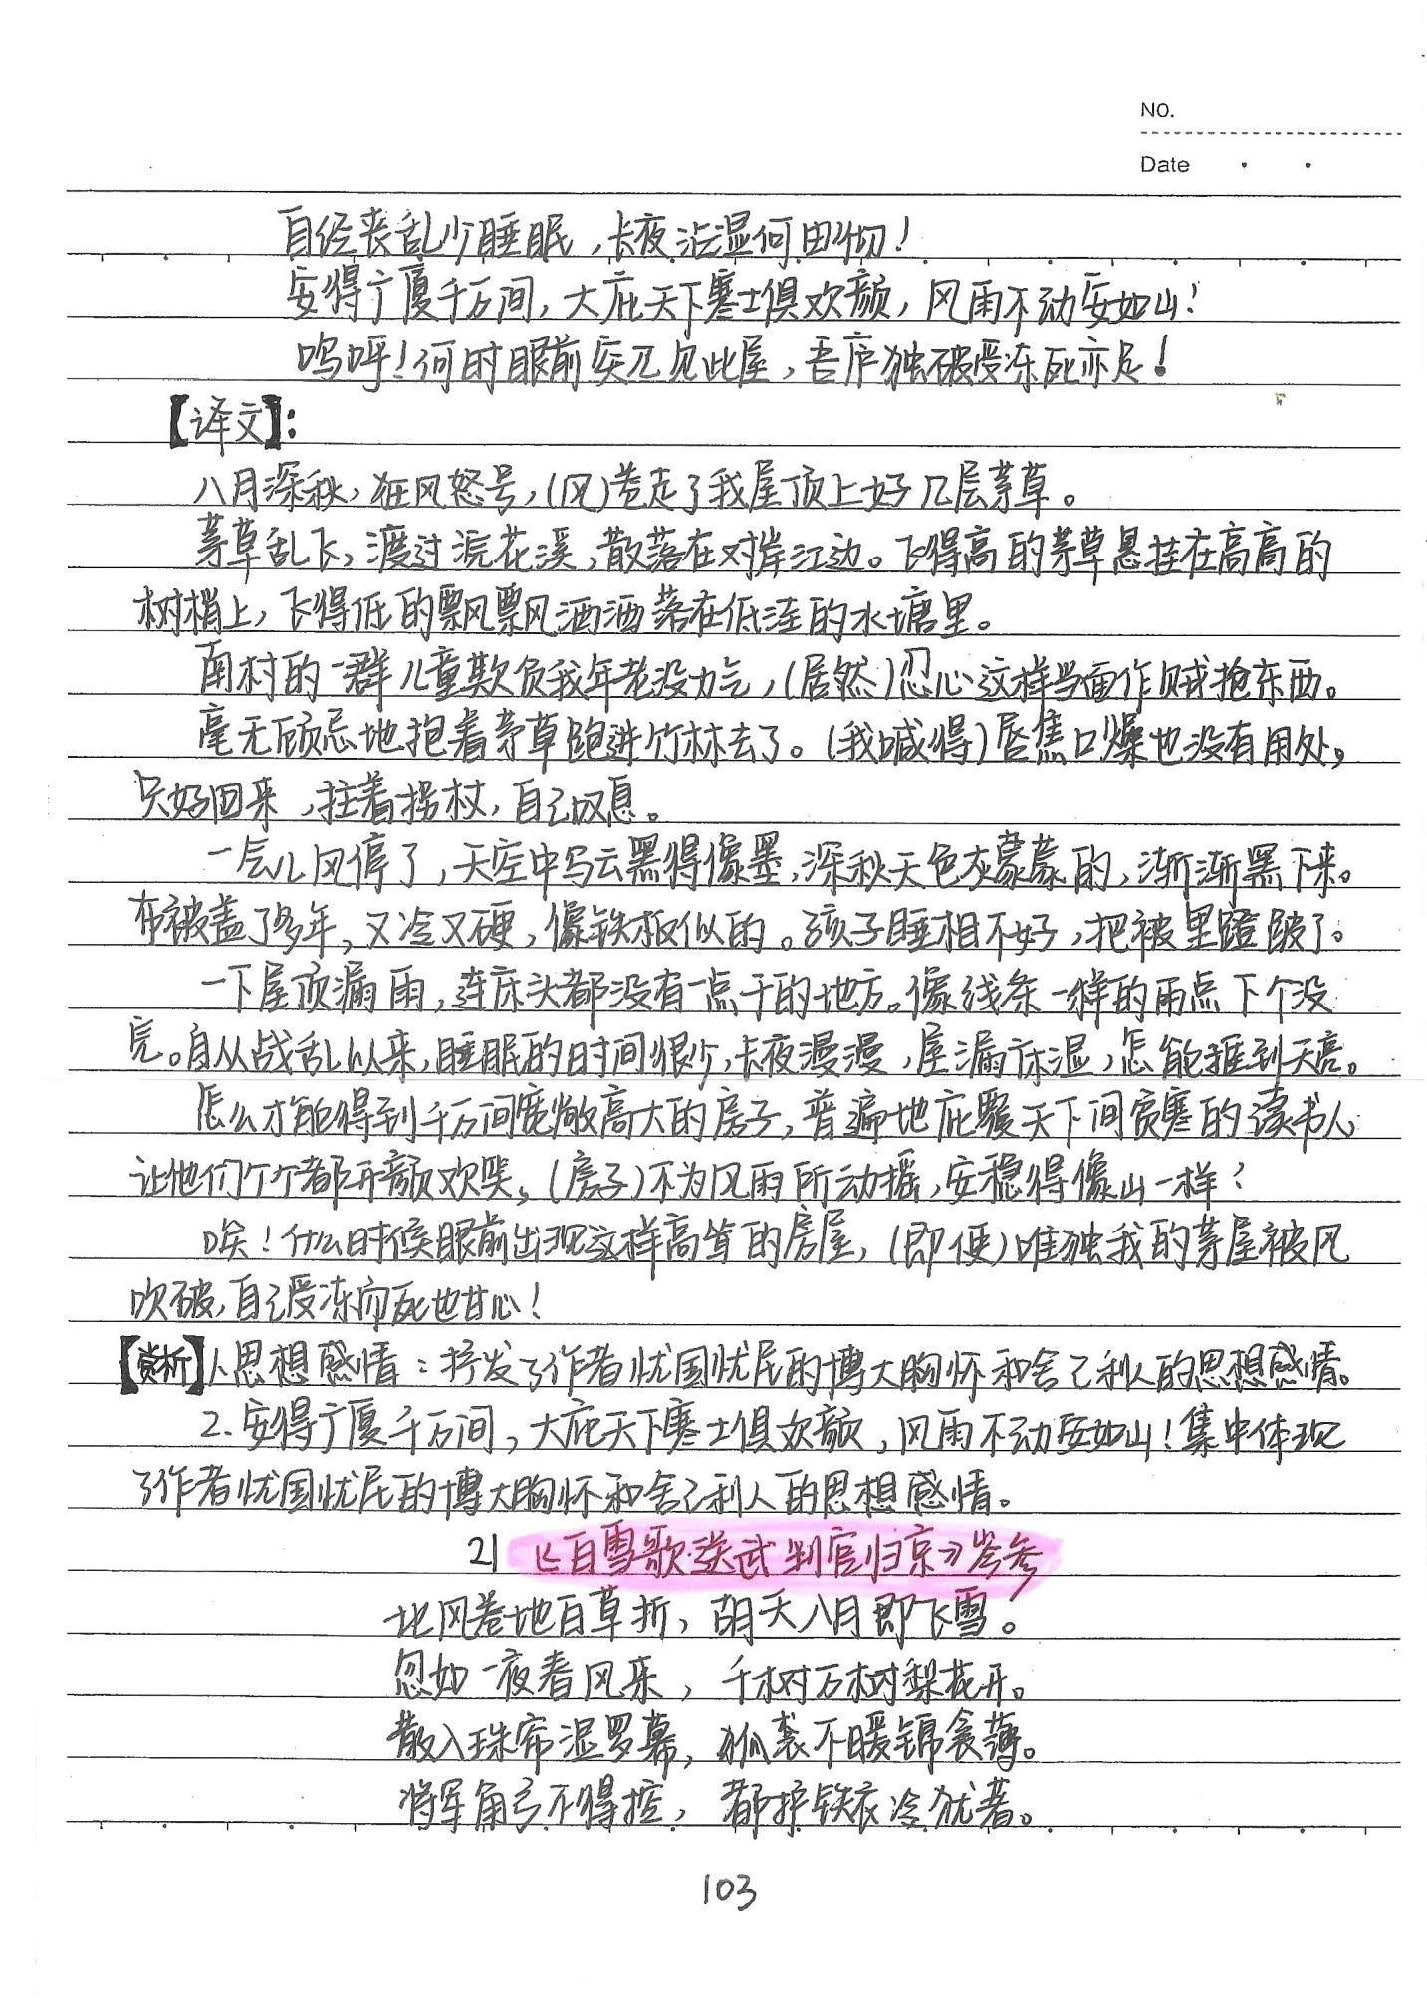 NO.
Date
自经丧乱少睡眠,长夜沾湿何由彻!
安得广厦千万间,大庇天下寒士俱欢颜,风雨不动安如山!
呜呼!何时眼前突兀见此屋,吾庐独破受冻死亦足!
【译文】:
八月深秋,狂风怒号,(风)卷走了我屋顶上好几层茅草。
茅草乱飞,渡过浣花溪,散落在对岸江边。飞得高的茅草悬挂在高高的
树梢上,飞得低的飘飘洒洒落在低洼的水塘里。
南村的一群儿童欺负我年老没力气,(居然)忍心这样当面作贼抢东西。
毫无顾忌地抱着茅草跑进竹林去了。(我喊得)唇焦口燥也没有用处,
只好回来,拄着拐杖,自己叹息。
一会儿风停了,天空中乌云黑得像墨,深秋天色灰蒙蒙的,渐渐黑下来。
布被盖了多年,又冷又硬,像铁板似的。孩子睡相不好,把被里蹬破了。
一下屋顶漏雨,连床头都没有一点干的地方。像线条一样的雨点下个没
完。自从战乱以来,睡眠的时间很少,长夜漫漫,屋漏床湿,怎能挨到天亮。
怎么才能得到千万间宽敞高大的房子,普遍地庇覆天下间贫寒的读书人
让他们个个都开颜欢笑,(房子)不为风雨所动摇,安稳得像山一样?
唉!什么时候眼前出现这样高耸的房屋,(即便)唯独我的茅屋被风
吹破,自己受冻而死也甘心!
【赏析】1.思想感情:抒发了作者忧国忧民的博大胸怀和舍己利人的思想感情。
2.安得广厦千万间,大庇天下寒士俱欢颜,风雨不动安如山!集中体现
了作者忧国忧民的博大胸怀和舍己利人的思想感情。
21 《白雪歌·送武判官归京》岑参
北风卷地百草折,胡天八月即飞雪。
忽如一夜春风来,千树万树梨花开。
散入珠帘湿罗幕,狐裘不暖锦衾薄。
将军角弓不得控,都护铁衣冷犹著。
103